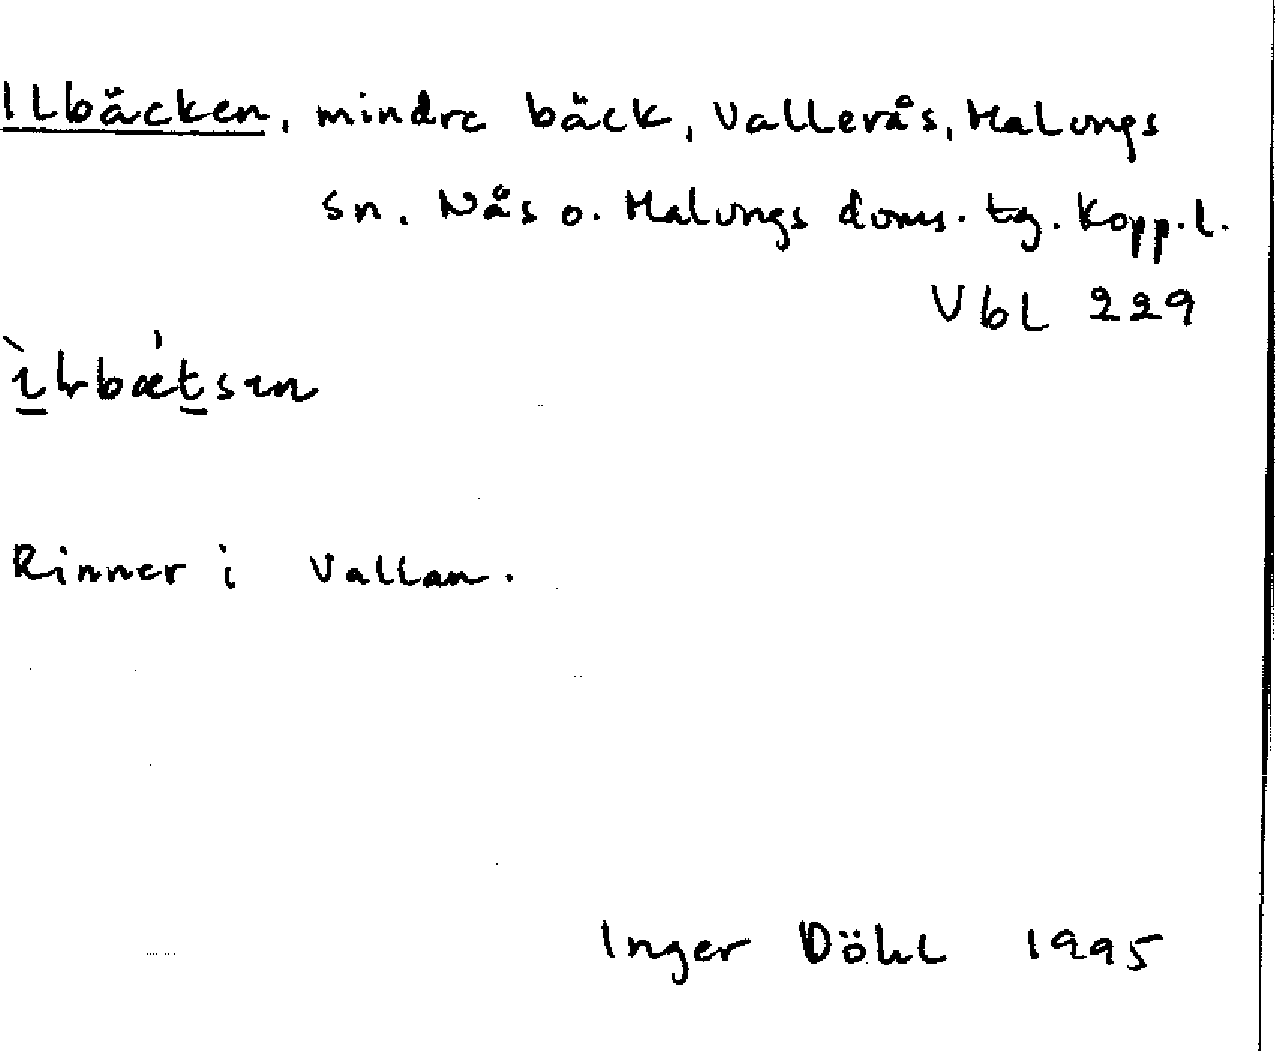 Ilbäcken, mindre bäck, Vallerås, Malungs
sn. Nås o. Malungs doms. tg. Kopp.l.
Vbl 229
Rinner i Vallan.
Inger Döhl 1995